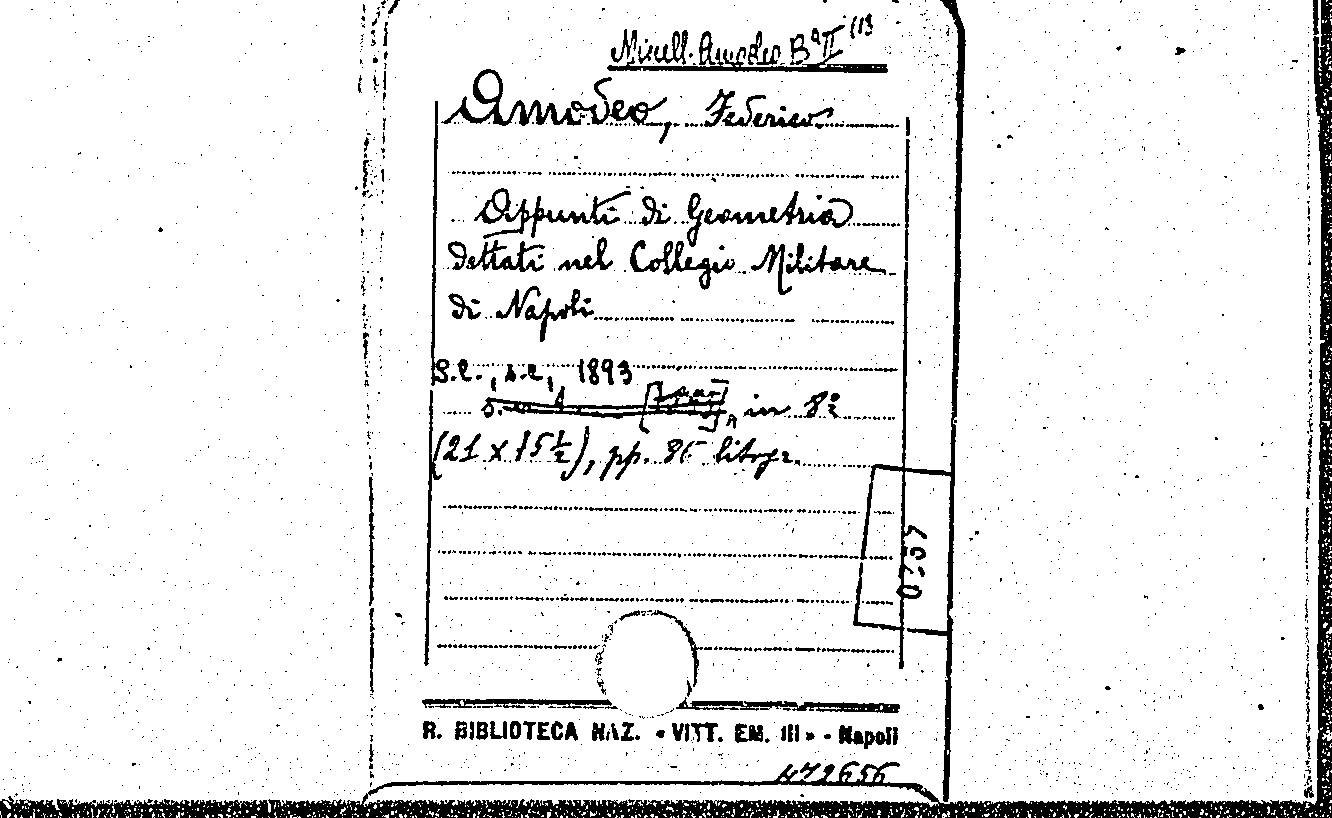 Miscell. Amodeo Bª II (13
Amodeo, Federico.
Appunti di Geometria
dettati nel Collegio Militare
di Napoli
S.l., s.e., 1893
in 8º
(21 x 15 1/2), pp. 86 litogr.
0757
R. BIBLIOTECA NAZ. « VITT. EM. III » - Napoli
472656